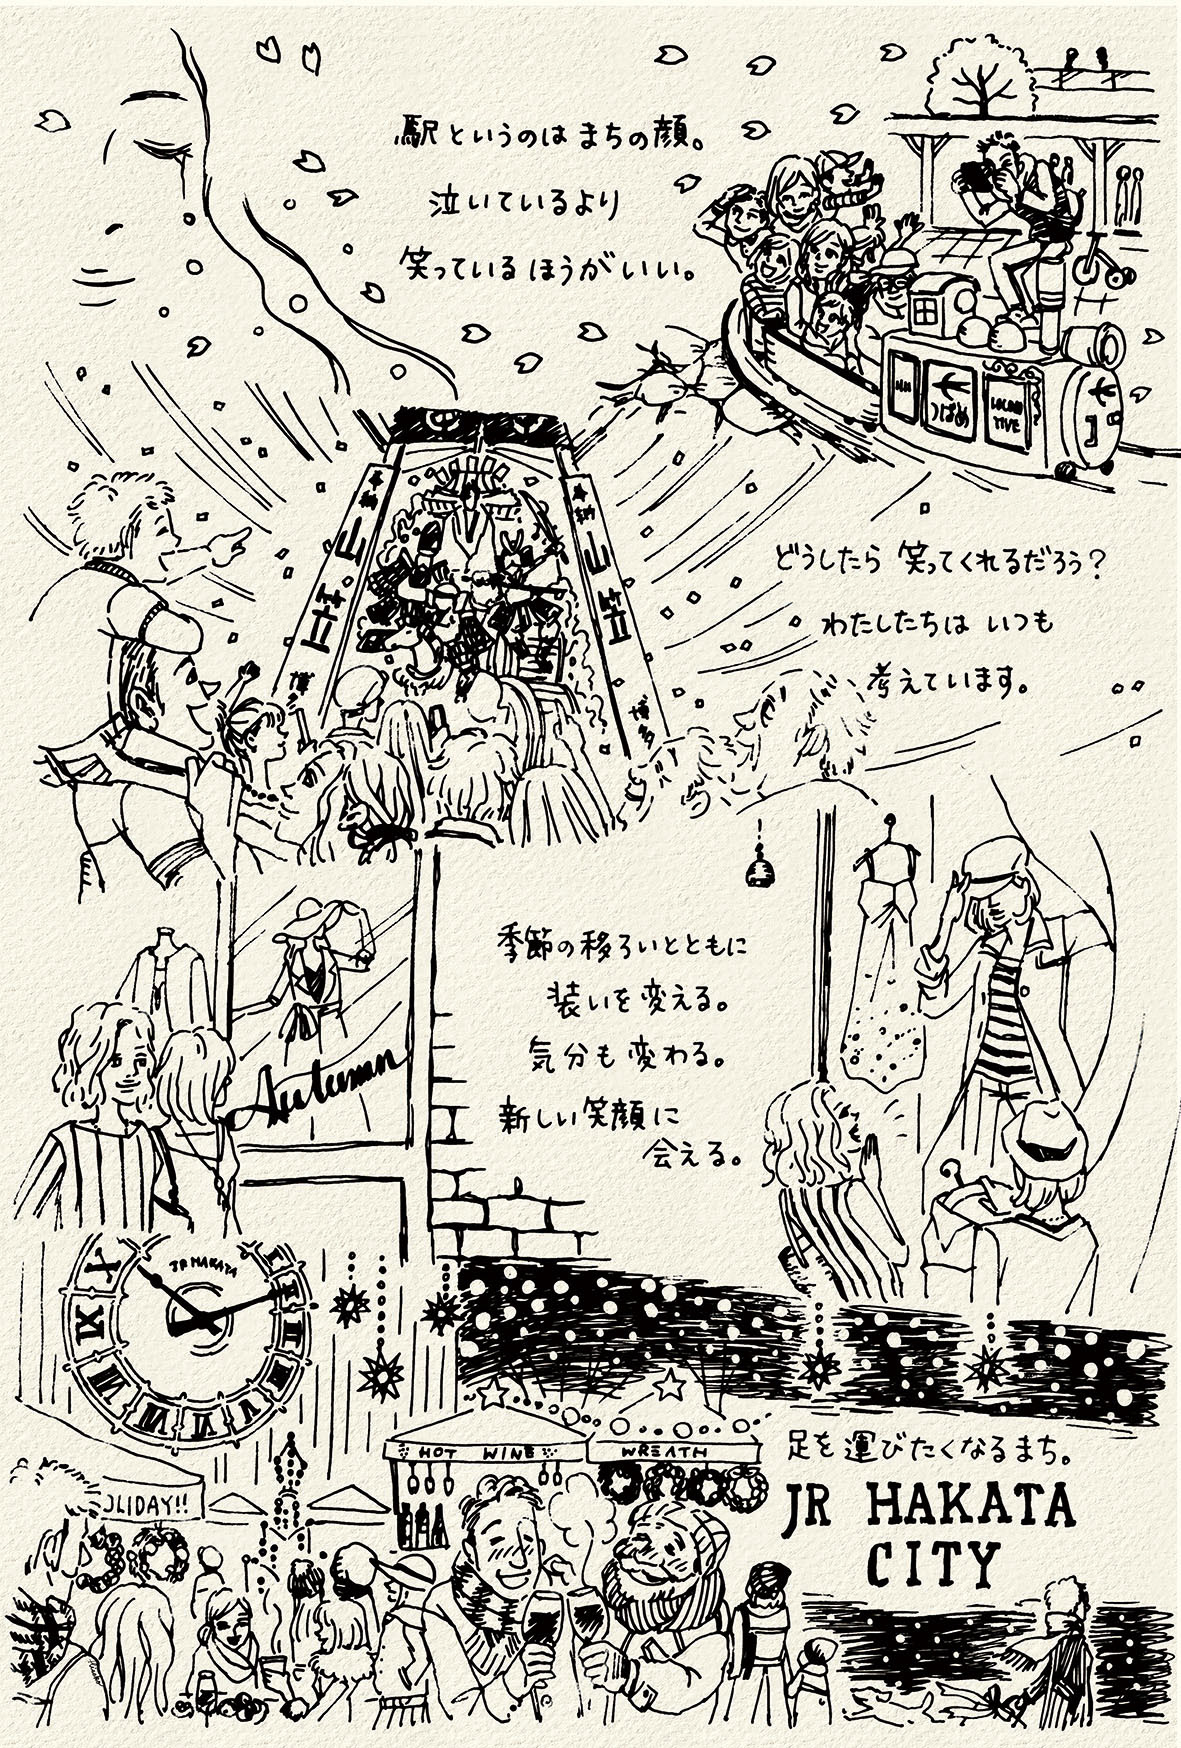 駅というのは まちの顔。
泣いているより
笑っているほうがいい。
つばめ
LOCOMO
TIVE
奉納
山笠
奉納
山笠
博
博多
どうしたら 笑ってくれるだろう?
わたしたちは いつも
考えています。
季節の移ろいとともに
装いを変える。
気分も変わる。
新しい笑顔に
会える。
Autumn
JR HAKATA
HOT WINE
WREATH
OLIDAY!!
足を運びたくなるまち。
JR HAKATA
CITY